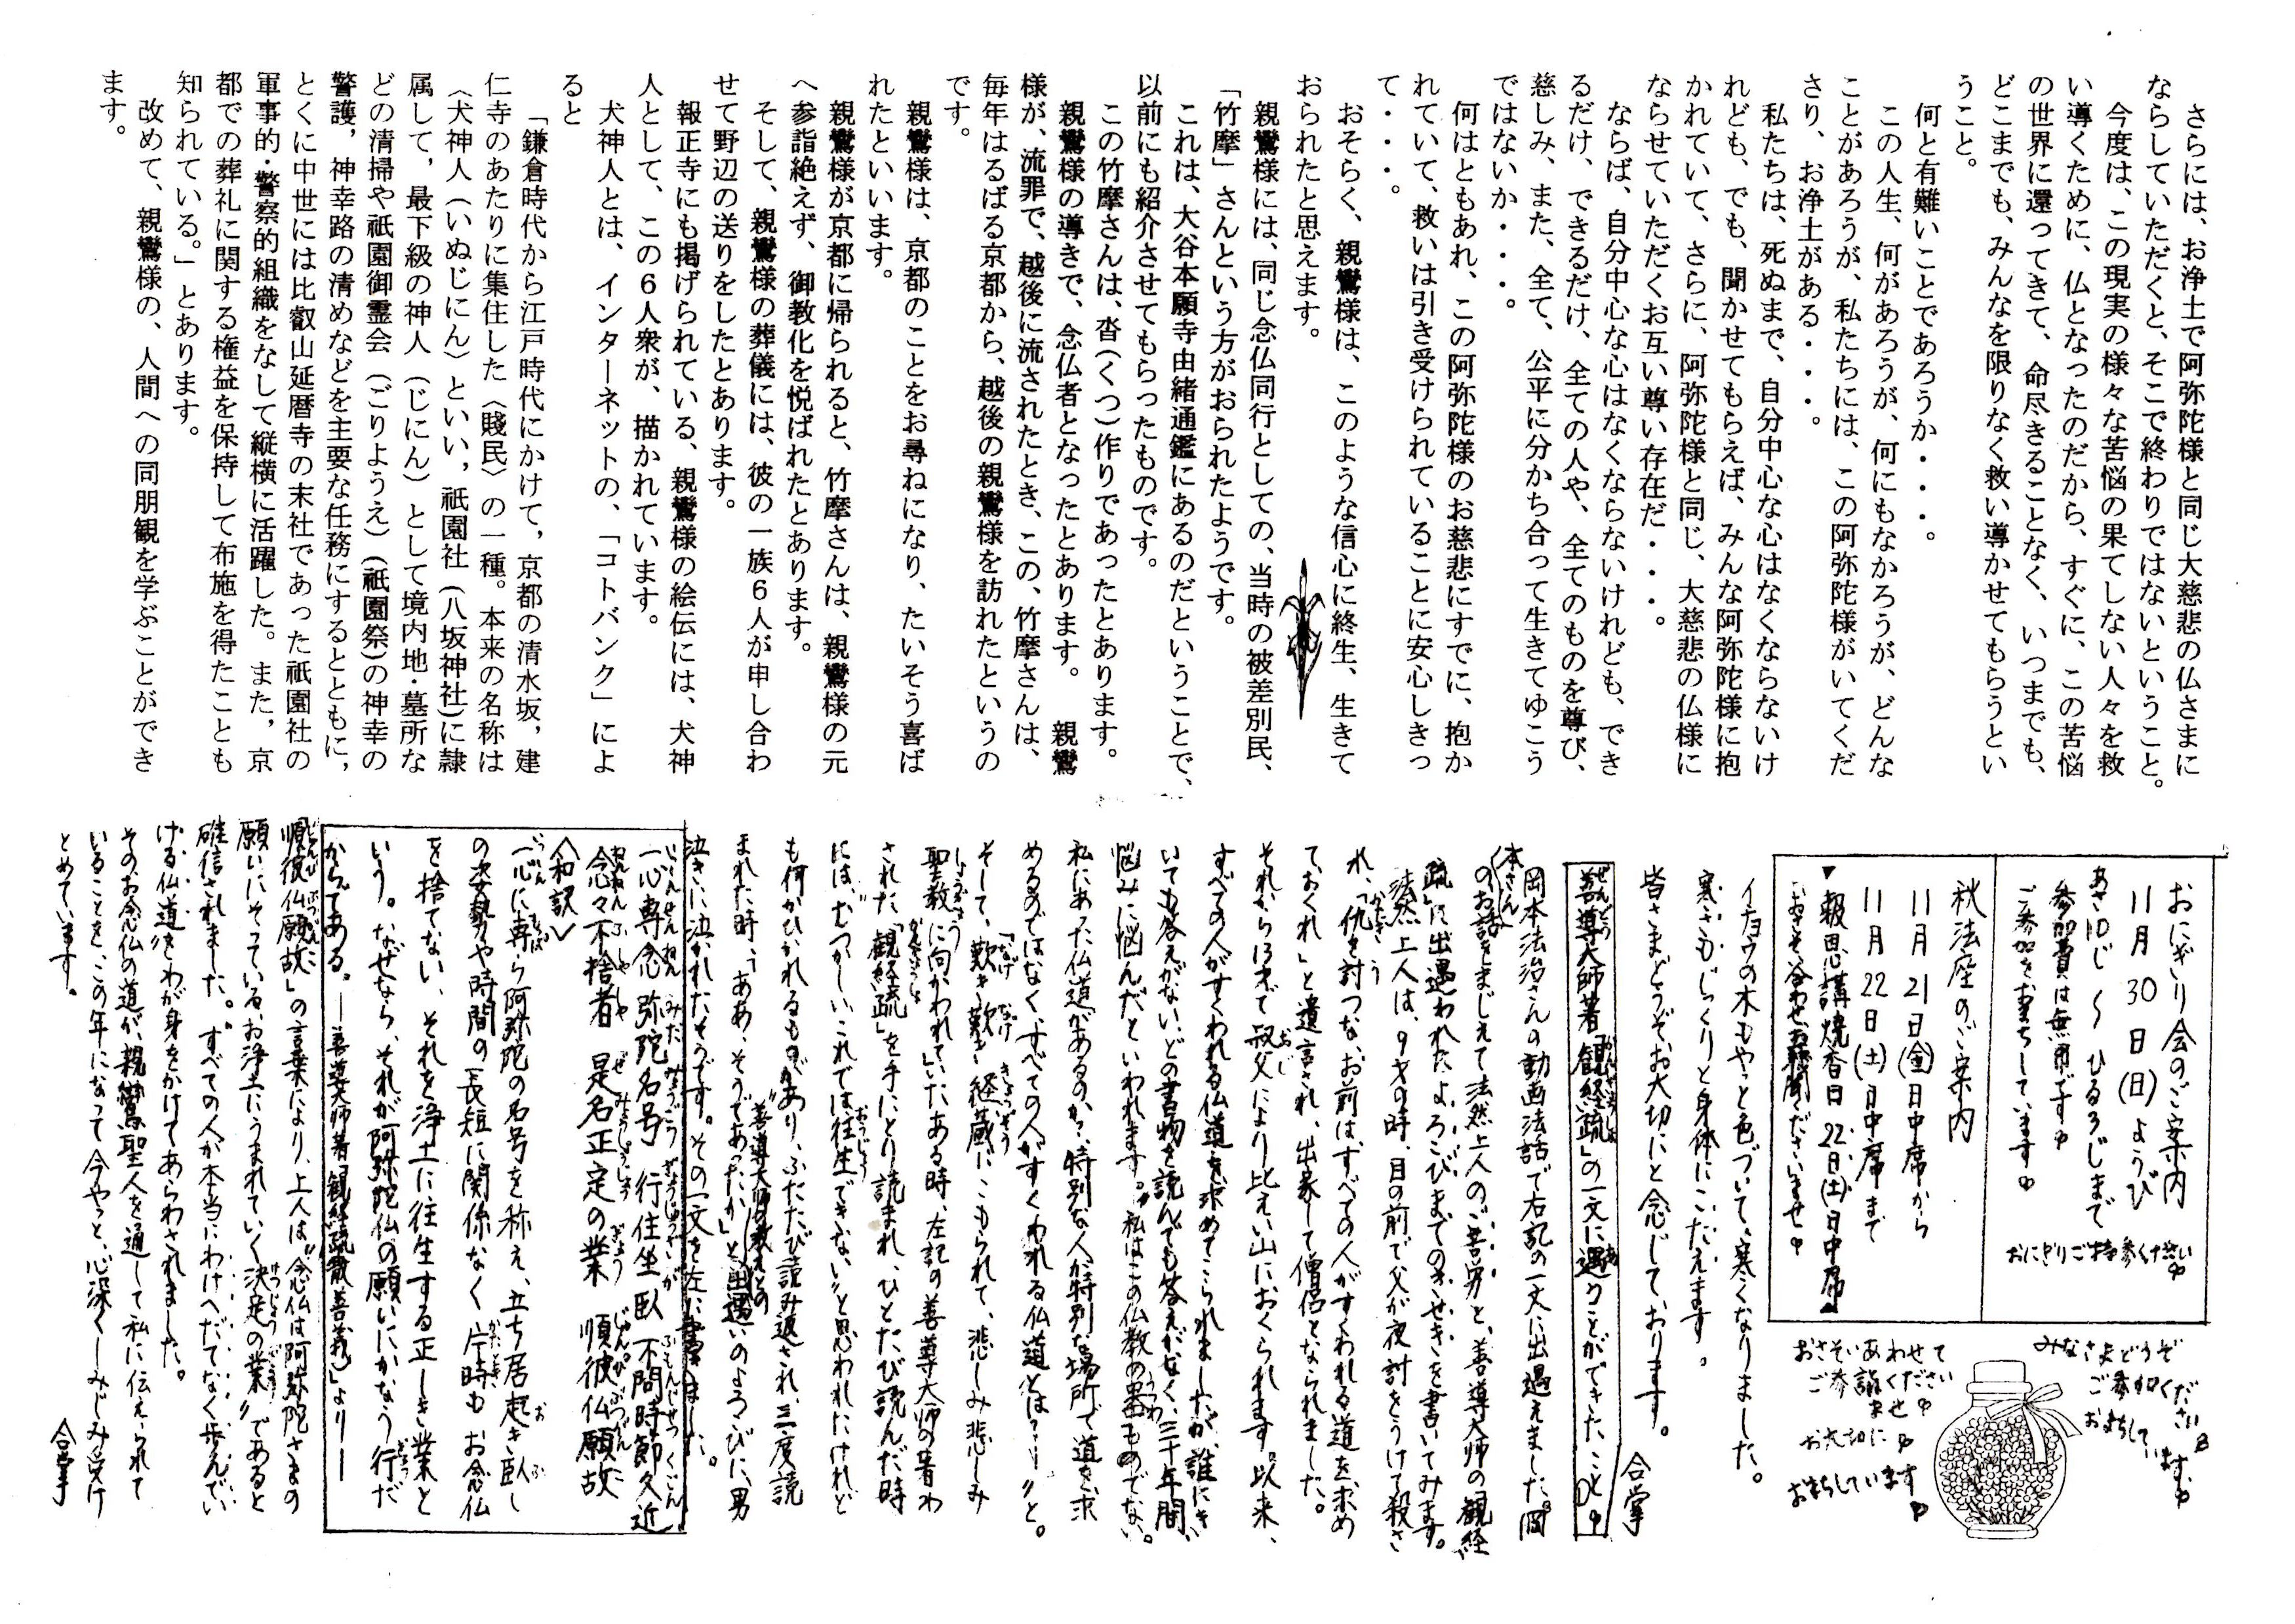 さらには、お浄土で阿弥陀様と同じ大慈悲の仏さまに
ならしていただくと、そこで終わりではないということ。
今度は、この現実の様々な苦悩の果てしない人々を救
い導くために、仏となったのだから、すぐに、この苦悩
の世界に還ってきて、命尽きることなく、いつまでも、
どこまでも、みんなを限りなく救い導かせてもらうとい
うこと。
何と有難いことであろうか・・・。
この人生、何があろうが、何にもなかろうが、どんな
ことがあろうが、私たちには、この阿弥陀様がいてくだ
さり、お浄土がある・・・。
私たちは、死ぬまで、自分中心な心はなくならないけ
れども、でも、聞かせてもらえば、みんな阿弥陀様に抱
かれていて、さらに、阿弥陀様と同じ、大慈悲の仏様に
ならせていただくお互い尊い存在だ・・・。
ならば、自分中心な心はなくならないけれども、でき
るだけ、できるだけ、全ての人や、全てのものを尊び、
慈しみ、また、全て、公平に分かち合って生きてゆこう
ではないか・・・。
何はともあれ、この阿弥陀様のお慈悲にすでに、抱か
れていて、救いは引き受けられていることに安心しきっ
て・・・。
おそらく、親鸞様は、このような信心に終生、生きて
おられたと思えます。
親鸞様には、同じ念仏同行としての、当時の被差別民、
「竹摩」さんという方がおられたようです。
これは、大谷本願寺由緒通鑑にあるのだということで、
以前にも紹介させてもらったものです。
この竹摩さんは、沓(くつ)作りであったとあります。
親鸞様の導きで、念仏者となったとあります。 親鸞
様が、流罪で、越後に流されたとき、この、竹摩さんは、
毎年はるばる京都から、越後の親鸞様を訪れたというの
です。
親鸞様は、京都のことをお尋ねになり、たいそう喜ば
れたといいます。
親鸞様が京都に帰られると、竹摩さんは、親鸞様の元
へ参詣絶えず、御教化を悦ばれたとあります。
そして、親鸞様の葬儀には、彼の一族6人が申し合わ
せて野辺の送りをしたとあります。
報正寺にも掲げられている、親鸞様の絵伝には、犬神
人として、この6人衆が、描かれています。
犬神人とは、インターネットの、「コトバンク」によ
ると
「鎌倉時代から江戸時代にかけて，京都の清水坂，建
仁寺のあたりに集住した〈賤民〉の一種。本来の名称は
〈犬神人（いぬじにん）といい，祇園社（八坂神社)に隷
属して，最下級の神人（じにん）として境内地・墓所な
どの清掃や祇園御霊会（ごりようえ）(祇園祭)の神幸の
警護，神幸路の清めなどを主要な任務にするとともに，
とくに中世には比叡山延暦寺の末社であった祇園社の
軍事的・警察的組織をなして縦横に活躍した。また，京
都での葬礼に関する権益を保持して布施を得たことも
知られている。」とあります。
改めて、親鸞様の、人間への同朋観を学ぶことができ
ます。
おにぎり会のご案内
11月30日(日)ようび
あさ10じ〜ひる3じまで
おにぎりご持参ください
参加費は無用です
ご参加をお待ちしています
みなさまどうぞ
ご参加ください
おまちしています
秋法座のご案内
11月21日(金)日中席から
11月22日(土)日中席まで
▼報恩講焼香日22日(土)日中席▲
おさそい合わせお聴聞くださいませ
おさそいあわせて
ご参詣くださいませ
お大切に
おまちしています
イチョウの木もやっと色づいて、寒くなりました。
寒さもじっくりと身体にこたえます。
皆さまどうぞお大切にと念じております。 合掌
善導大師著「観経疏」の一文に遇うことができたこと
岡本法治さんの動画法話で右記の一文に出遇えました。岡
本さんのお話をまじえて法然上人のご苦労と、善導大師の「観経
疏」に出遇われたよろこびまでのきせきを書いてみます。
法然上人は、9才の時、目の前で父が夜討をうけて殺さ
れ、「仇を討つな、お前は、すべての人がすくわれる道を求め
ておくれ」と遺言され、出家して僧侶となられました。
それから13才で叔父により比えい山におくられます。以来、
すべての人がすくわれる仏道を求めてこられましたが、誰にき
いても答えがない、どの書物を読んでも答えがなく、三十年間、
悩みに悩んだといわれます。“私はこの仏教の器ものでない。
私にあった仏道があるのか？、特別な人が特別な場所で道を求
めるのではなく、すべての人がすくわれる仏道とは？ー”と。
そして、「歎き歎き経蔵にこもられて、悲しみ悲しみ
聖教に向かわれて」いたある時、左記の善導大師の著わ
された「観経疏」を手にとり読まれ、ひとたび読んだ時
には“むつかしい、これでは往生できない”と思われたけれど
も何かひかれるものがあり、ふたたび読み返され、三度読
まれた時、“ああ、そうであったか”と善導大師の教えとの出遇いのよろこびに、男
泣きに泣かれたそうです。その一文を左に書きました。
一心専念弥陀名号 行住坐臥 不問時節久近
念々不捨者 是名正定の業 順彼仏願故
〈和訳〉
「一心に専ら阿弥陀の名号を称え、立ち居起き臥し
の姿勢や時間の長短に関係なく 片時も お念仏
を捨てない、それを浄土に往生する正しき業と
いう。なぜなら、それが阿弥陀仏の願いにかなう行だ
からである。―善導大師著「観経疏散善義」より―
「順彼仏願故」の言葉により、上人は“念仏は阿弥陀さまの
願いにそっている、お浄土にうまれていく決定の業”であると
確信されました。“すべての人が本当にわけへだてなく歩んでい
ける仏道”をわが身をかけてあらわされました。
その、お念仏の道が、親鸞聖人を通して私に伝えられて
いることを、この年になって今やっと、心深くしみじみ受け
とめています。
合掌